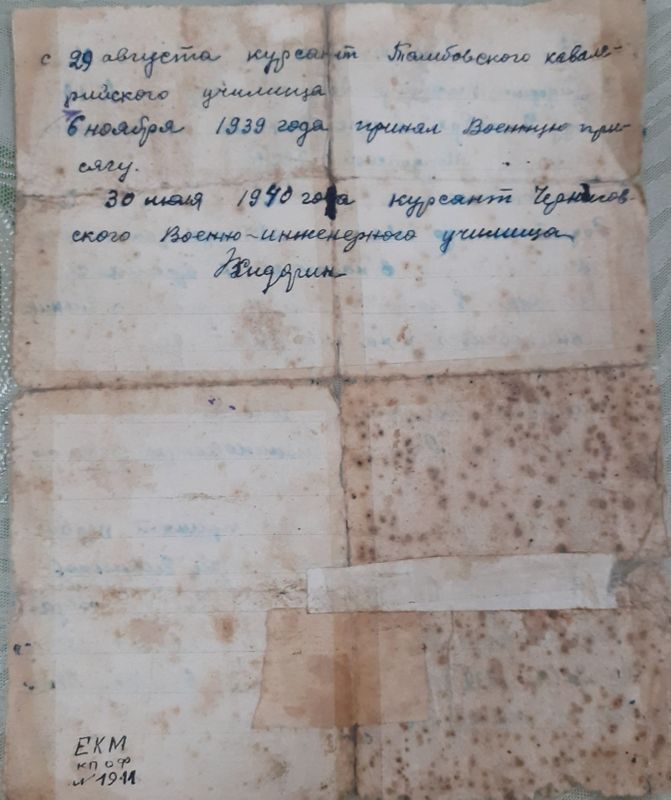 с 29 августа курсант Тамбовского кавале-
рийского училища
6 ноября 1939 года принял Военную при-
сягу.
30 июля 1940 года курсант Чернигов-
ского Военно-инженерного училища
ЕКМ
КП ОФ
№ 1911